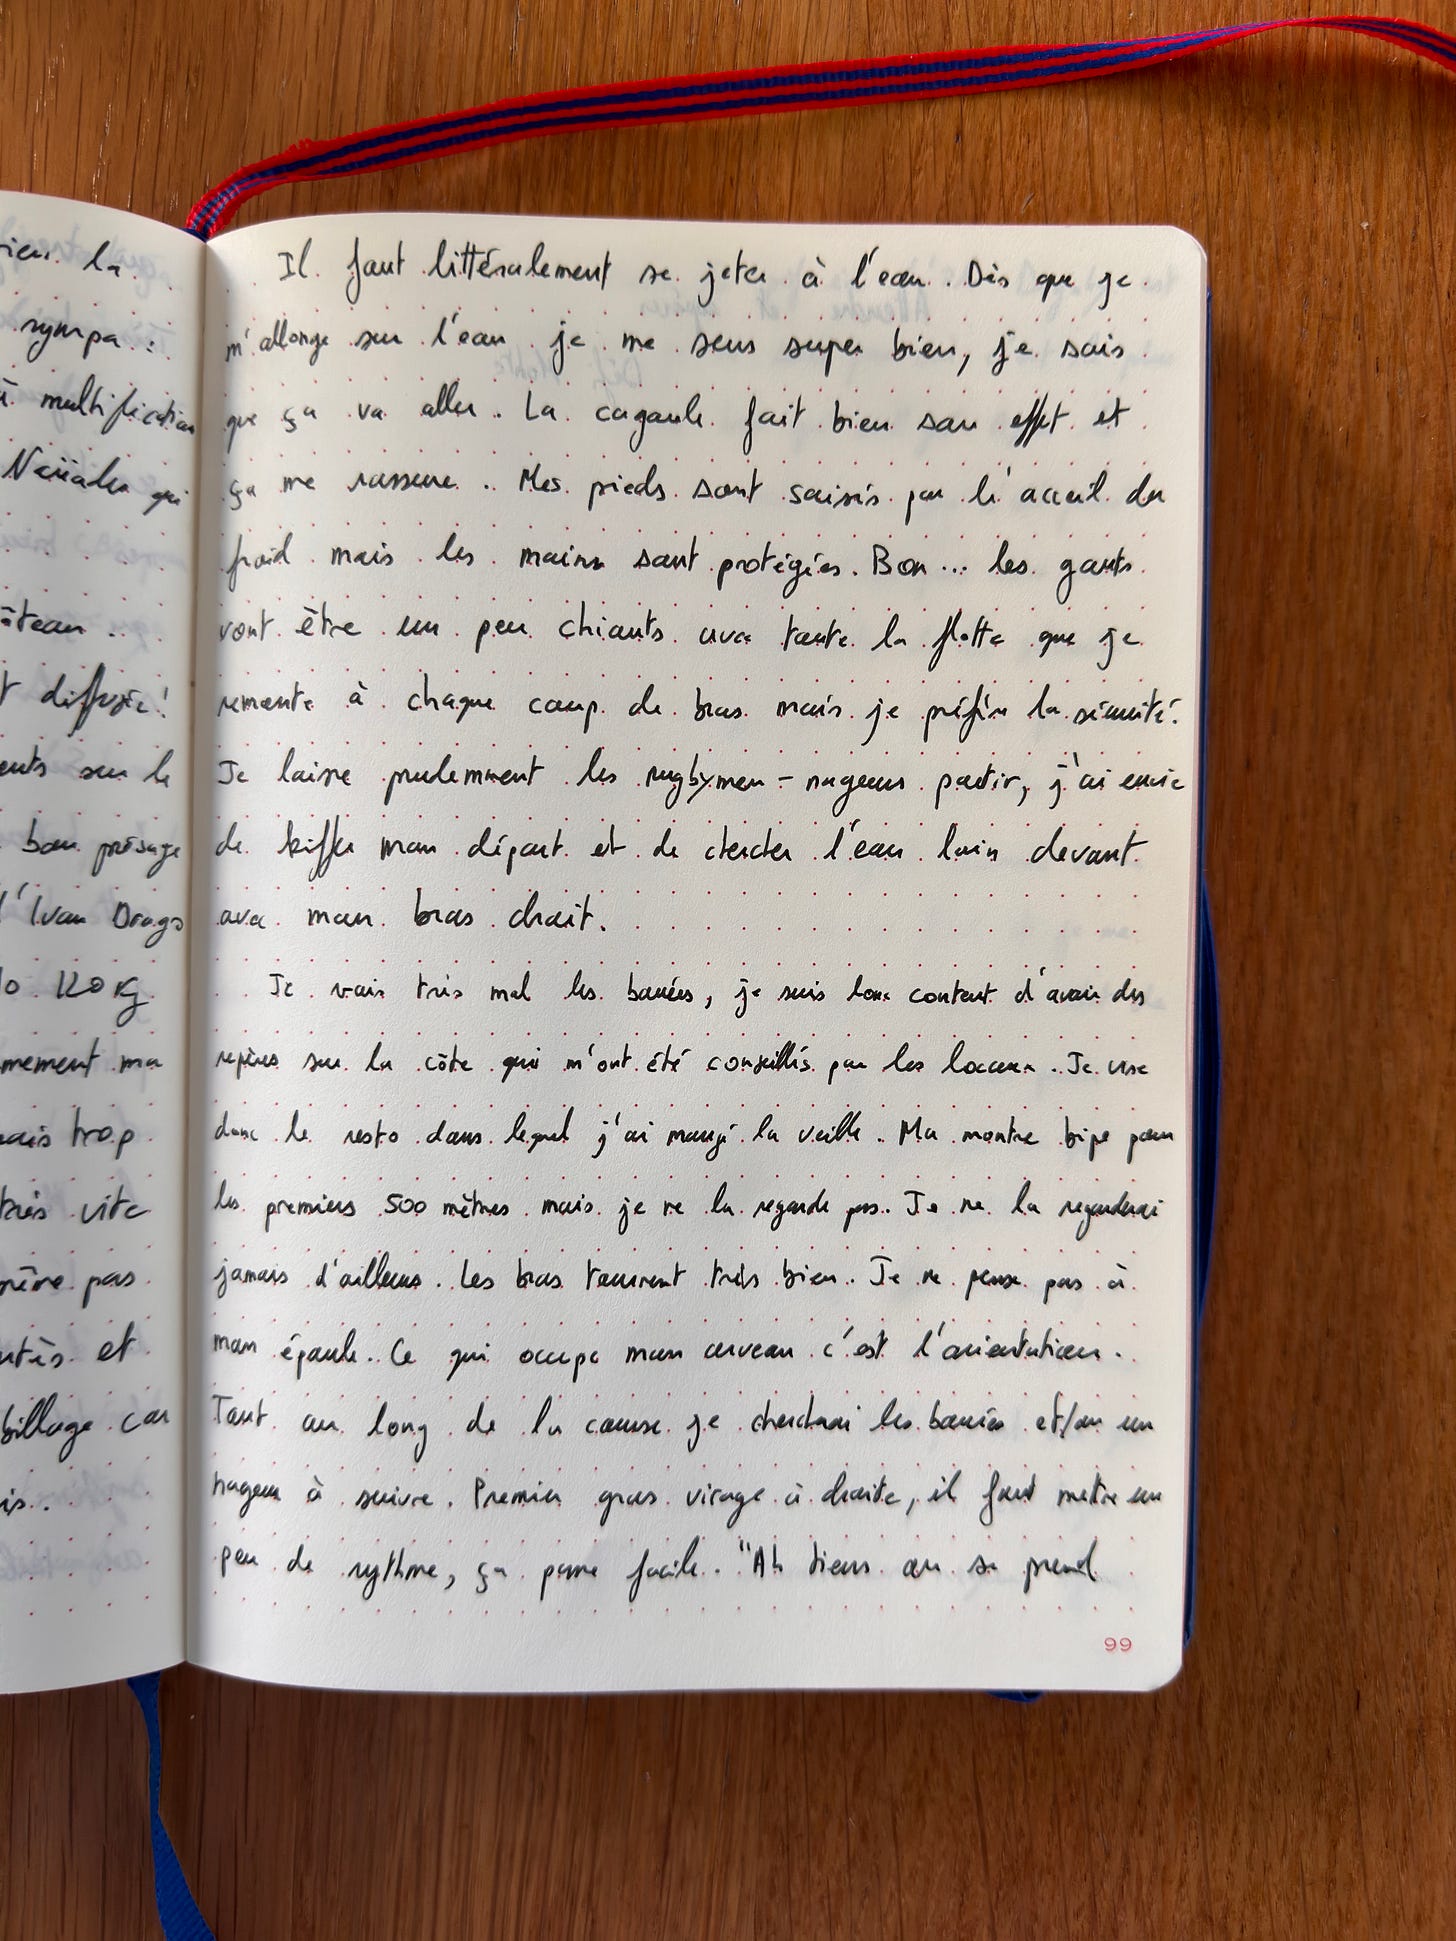 rien la
sympa :
à multification
Néiiades qui
âteau ..
t diffusée !
ents sur le
bon présage
d'Ivan Drago
120 Kg
mement ma
mais trop
très vite
père pas
et
billage car
is..
Il faut littéralement se jeter à l'eau. Dès que je
m'allonge sur l'eau je me sens super bien, je sais
que ça va aller. La cagoule fait bien son effet et
ça me rassure.. Mes pieds sont saisis par l'acceuil du
froid mais les mains sont protégées. Bon... les gants
vont être un peu chiants avec toute la flotte que je
remonte à chaque coup de bras mais je préfère la sécurité.
Je laisse prudemment les rugbymen - nageurs partir, j'ai envie
de kiffer mon départ et de chercher l'eau loin devant
avec mon bras droit.
Je vois très mal les bouées, je suis donc content d'avoir des
repères sur la côte qui m'ont été conseillés par les locaux. Je vise
donc le resto dans lequel j'ai mangé la veille. Ma montre bipe pour
les premiers 500 mètres mais je ne la regarde pas. Je ne la regarderai
jamais d'ailleurs. Les bras tournent très bien. Je ne pense pas à
mon épaule. Ce qui occupe mon cerveau c'est l'orientation.
Tout au long de la course je chercherai les bouées et/ou un
nageur à suivre. Premier gros virage à droite, il faut mettre un
peu de rythme, ça passe facile. "Ah tiens on se prend
99